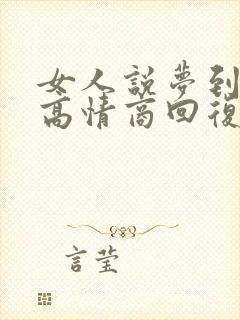 女人說夢到
高情商回復
言瑩